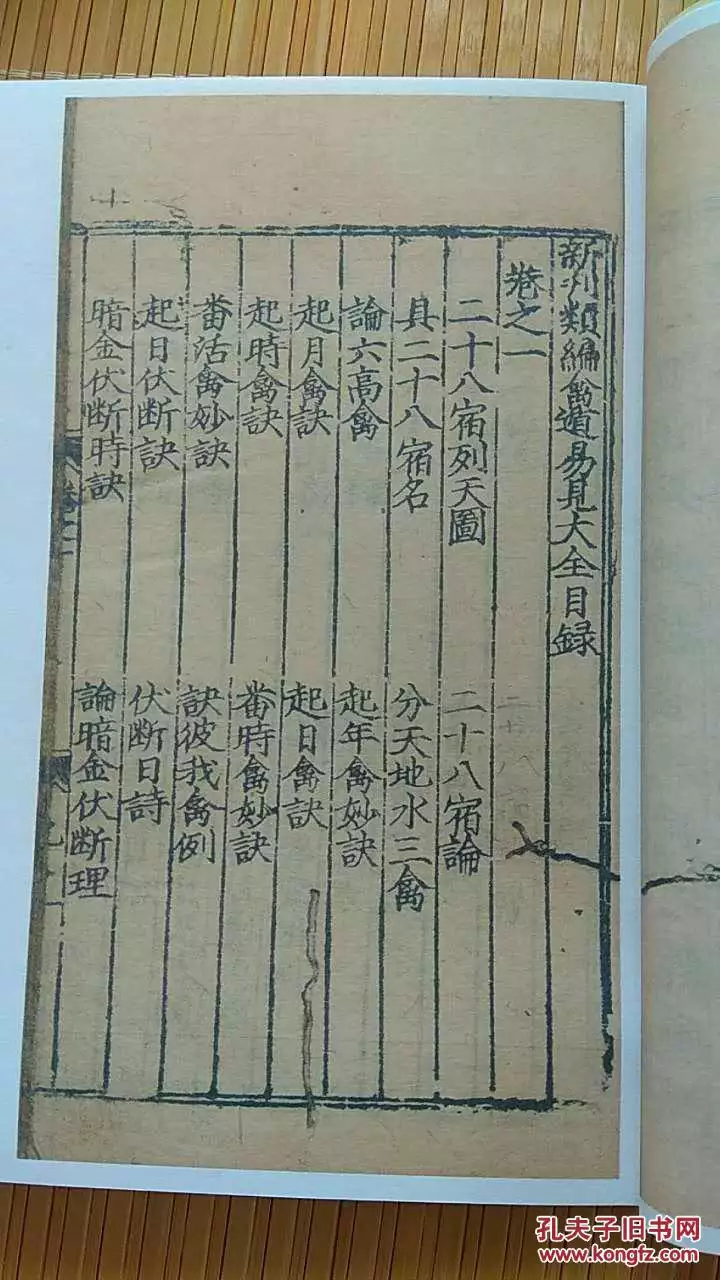 新刋類編禽遁易見大全目録
卷之一
二十八宿列天圖
二十八宿論
具二十八宿名
分天地水三禽
論六高禽
起年禽妙訣
起月禽訣
起日禽訣
起時禽訣
番時禽妙訣
番活禽妙訣
訣彼我禽例
起日伏断訣
伏断日詩
暗金伏断時訣
論暗金伏断理
孔夫子旧书网
www.kongfz.com